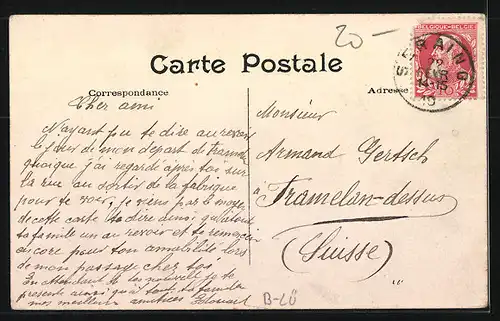 20 -
BELGIQUE-BELGIE
SERAING
Carte Postale
Correspondance
Adresse
Cher ami
N'ayant pu te dire au revoir
le jour de mon départ de
quoique j'ai regardé après toi sur
la rue au sortir de la fabrique
pour te voir, je viens par le moyen
de cette carte te dire ainsi qu'à toute
ta famille un au revoir et te remercier
encore pour ton amabilité lors
de mon passage chez toi
En attendant de tes nouvelles je te
présente ainsi qu'à toute ta famille
mes meilleures amitiés Edouard
Monsieur
Armand Gertsch
à Tramelan-dessus
(Suisse)
B-LÜ